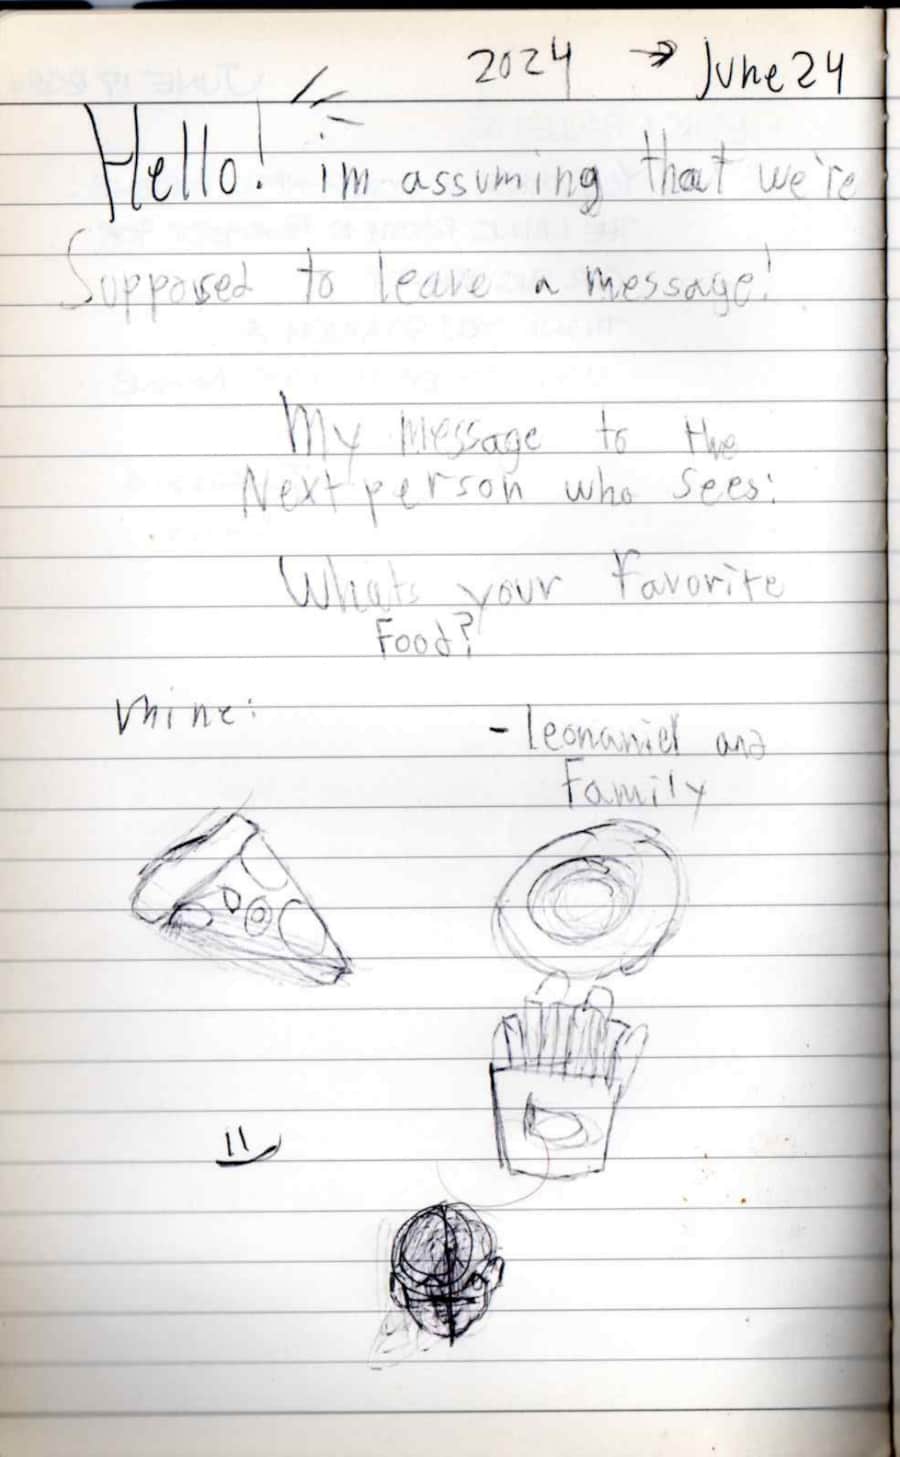 2024 → June 24
Hello! im assuming that we're
Supposed to leave a message!
My message to the
Next person who sees:
Whats your favorite
Food?
Mine:
- Leonaniel and
Family